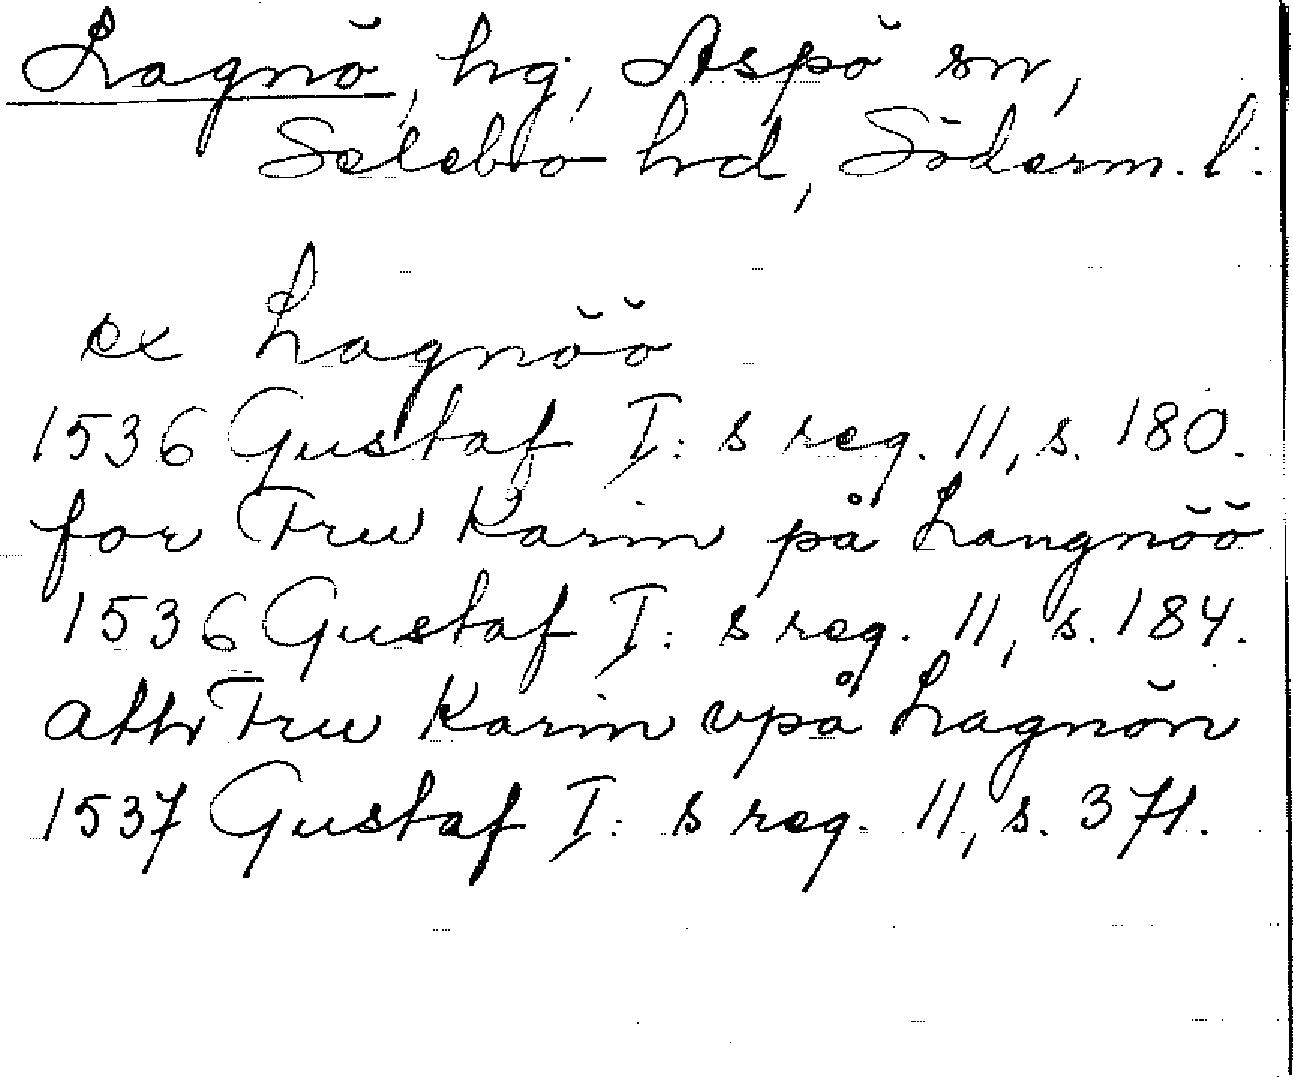 Lagnö, hg, Aspö sn,
Selebo hd, Söderm. l.
ex Lagnöö
1536 Gustaf I:s reg. 11, s. 180.
for Fru Karin på Langnöö
1536 Gustaf I:s reg. 11, s. 184.
Fru Karin vpå Lagnön
1537 Gustaf I:s reg. 11, s. 371.